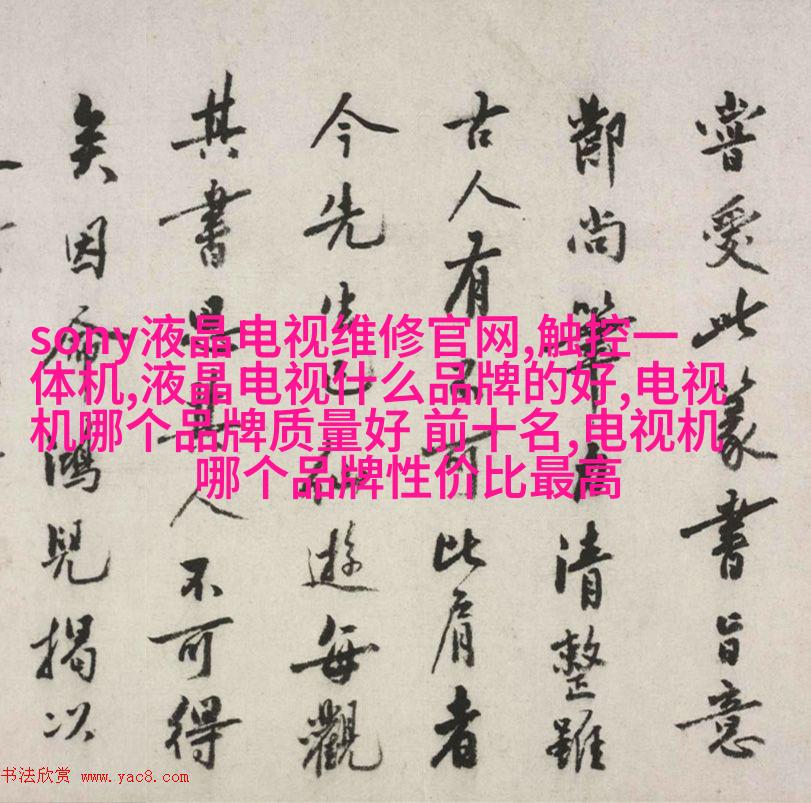 嘗愛此篆書旨意
尚筆清整雖
古人有可比肩者
今先生已仙遊每觀
其書其人不可得
矣因鴻兒揭以
sony液晶电视维修官网,触控一
体机,液晶电视什么品牌的好,电视
机哪个品牌质量好 前十名,电视机
哪个品牌性价比最高
书法欣赏 www.yac8.com